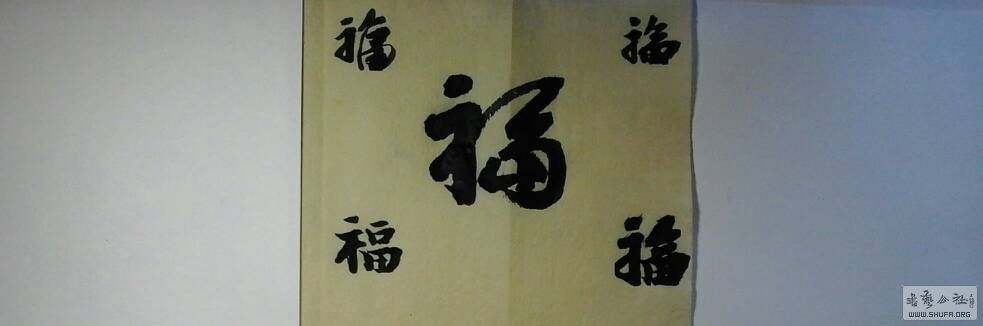 福 福
福
福 福
书艺公社
WWW.SHUFA.ORG